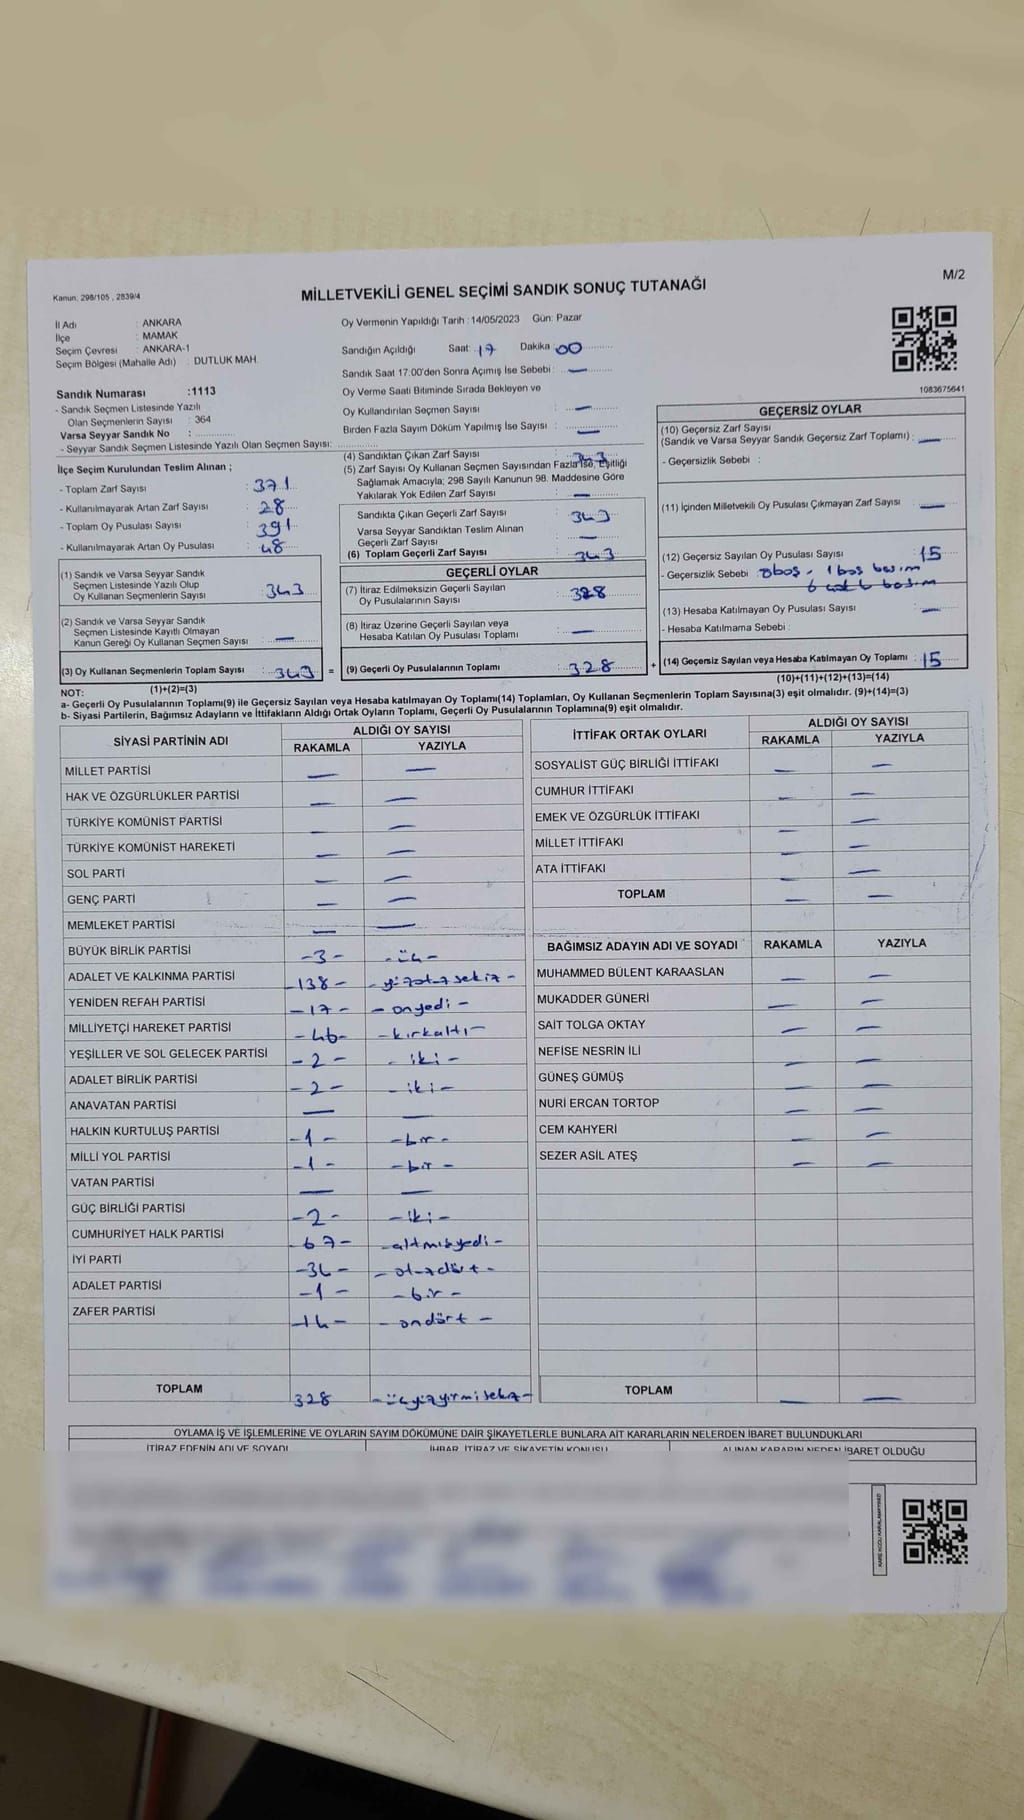 M/2
Kanun: 298/105 , 2839/4
MİLLETVEKİLİ GENEL SEÇİMİ SANDIK SONUÇ TUTANAĞI
İl Adı : ANKARA
İlçe : MAMAK
Seçim Çevresi : ANKARA-1
Seçim Bölgesi (Mahalle Adı) : DUTLUK MAH.
Sandık Numarası :1113
- Sandık Seçmen Listesinde Yazılı
Olan Seçmenlerin Sayısı : 364
Varsa Seyyar Sandık No :
- Seyyar Sandık Seçmen Listesinde Yazılı Olan Seçmen Sayısı:
İlçe Seçim Kurulundan Teslim Alınan ;
- Toplam Zarf Sayısı : 371
- Kullanılmayarak Artan Zarf Sayısı : 28
- Toplam Oy Pusulası Sayısı : 391
- Kullanılmayarak Artan Oy Pusulası : 48
(1) Sandık ve Varsa Seyyar Sandık
Seçmen Listesinde Yazılı Olup
Oy Kullanan Seçmenlerin Sayısı : 343
(2) Sandık ve Varsa Seyyar Sandık
Seçmen Listesinde Kayıtlı Olmayan
Kanun Gereği Oy Kullanan Seçmen Sayısı : —
(3) Oy Kullanan Seçmenlerin Toplam Sayısı : 343 =
(1)+(2)=(3)
Oy Vermenin Yapıldığı Tarih : 14/05/2023 Gün: Pazar
Sandığın Açıldığı Saat : 17 Dakika : 00
Sandık Saat 17.00'den Sonra Açımış İse Sebebi : —
Oy Verme Saati Bitiminde Sırada Bekleyen ve
Oy Kullandırılan Seçmen Sayısı : —
Birden Fazla Sayım Döküm Yapılmış İse Sayısı : —
(4) Sandıktan Çıkan Zarf Sayısı : 343
(5) Zarf Sayısı Oy Kullanan Seçmen Sayısından Fazla İse, Eşitliği
Sağlamak Amacıyla; 298 Sayılı Kanunun 98. Maddesine Göre
Yakılarak Yok Edilen Zarf Sayısı : —
Sandıkta Çıkan Geçerli Zarf Sayısı : 343
Varsa Seyyar Sandıktan Teslim Alınan
Geçerli Zarf Sayısı : —
(6) Toplam Geçerli Zarf Sayısı : 343
GEÇERLİ OYLAR
(7) İtiraz Edilmeksizin Geçerli Sayılan
Oy Pusulalarının Sayısı : 328
(8) İtiraz Üzerine Geçerli Sayılan veya
Hesaba Katılan Oy Pusulası Toplamı : —
(9) Geçerli Oy Pusulalarının Toplamı : 328 +
1083675641
GEÇERSİZ OYLAR
(10) Geçersiz Zarf Sayısı
(Sandık ve Varsa Seyyar Sandık Geçersiz Zarf Toplamı) : —
- Geçersizlik Sebebi :
(11) İçinden Milletvekili Oy Pusulası Çıkmayan Zarf Sayısı : —
(12) Geçersiz Sayılan Oy Pusulası Sayısı : 15
- Geçersizlik Sebebi : 8 boş - 1 boş basım
6 çok basım
(13) Hesaba Katılmayan Oy Pusulası Sayısı : —
- Hesaba Katılmama Sebebi :
(14) Geçersiz Sayılan veya Hesaba Katılmayan Oy Toplamı : 15
(10)+(11)+(12)+(13)=(14)
NOT:
a- Geçerli Oy Pusulalarının Toplamı(9) ile Geçersiz Sayılan veya Hesaba katılmayan Oy Toplamı(14) Toplamları, Oy Kullanan Seçmenlerin Toplam Sayısına(3) eşit olmalıdır. (9)+(14)=(3)
b- Siyasi Partilerin, Bağımsız Adayların ve İttifakların Aldığı Ortak Oyların Toplamı, Geçerli Oy Pusulalarının Toplamına(9) eşit olmalıdır.
SİYASİ PARTİNİN ADI ALDIĞI OY SAYISI
RAKAMLA YAZIYLA
MİLLET PARTİSİ — —
HAK VE ÖZGÜRLÜKLER PARTİSİ — —
TÜRKİYE KOMÜNİST PARTİSİ — —
TÜRKİYE KOMÜNİST HAREKETİ — —
SOL PARTİ — —
GENÇ PARTİ — —
MEMLEKET PARTİSİ — —
BÜYÜK BİRLİK PARTİSİ -3- -üç-
ADALET VE KALKINMA PARTİSİ -138- -yüzotuzsekiz-
YENİDEN REFAH PARTİSİ -17- -onyedi-
MİLLİYETÇİ HAREKET PARTİSİ -46- -kırkaltı-
YEŞİLLER VE SOL GELECEK PARTİSİ -2- -iki-
ADALET BİRLİK PARTİSİ -2- -iki-
ANAVATAN PARTİSİ — —
HALKIN KURTULUŞ PARTİSİ -1- -bir-
MİLLİ YOL PARTİSİ -1- -bir-
VATAN PARTİSİ — —
GÜÇ BİRLİĞİ PARTİSİ -2- -iki-
CUMHURİYET HALK PARTİSİ -67- -altmışyedi-
İYİ PARTİ -34- -otuzdört-
ADALET PARTİSİ -1- -bir-
ZAFER PARTİSİ -14- -ondört-
TOPLAM 328 -üçyüzyirmisekiz-
İTTİFAK ORTAK OYLARI ALDIĞI OY SAYISI
RAKAMLA YAZIYLA
SOSYALİST GÜÇ BİRLİĞİ İTTİFAKI — —
CUMHUR İTTİFAKI — —
EMEK VE ÖZGÜRLÜK İTTİFAKI — —
MİLLET İTTİFAKI — —
ATA İTTİFAKI — —
TOPLAM — —
BAĞIMSIZ ADAYIN ADI VE SOYADI RAKAMLA YAZIYLA
MUHAMMED BÜLENT KARAASLAN — —
MUKADDER GÜNERİ — —
SAİT TOLGA OKTAY — —
NEFİSE NESRİN İLİ — —
GÜNEŞ GÜMÜŞ — —
NURİ ERCAN TORTOP — —
CEM KAHYERİ — —
SEZER ASİL ATEŞ — —
TOPLAM — —
OYLAMA İŞ VE İŞLEMLERİNE VE OYLARIN SAYIM DÖKÜMÜNE DAİR ŞİKAYETLERLE BUNLARA AİT KARARLARIN NELERDEN İBARET BULUNDUKLARI
İTİRAZ EDENİN ADI VE SOYADI İHBAR, İTİRAZ VE ŞİKAYETİN KONUSU ALINAN KARARIN NEDEN İBARET OLDUĞU
KARE KODU KARALAMAYINIZ